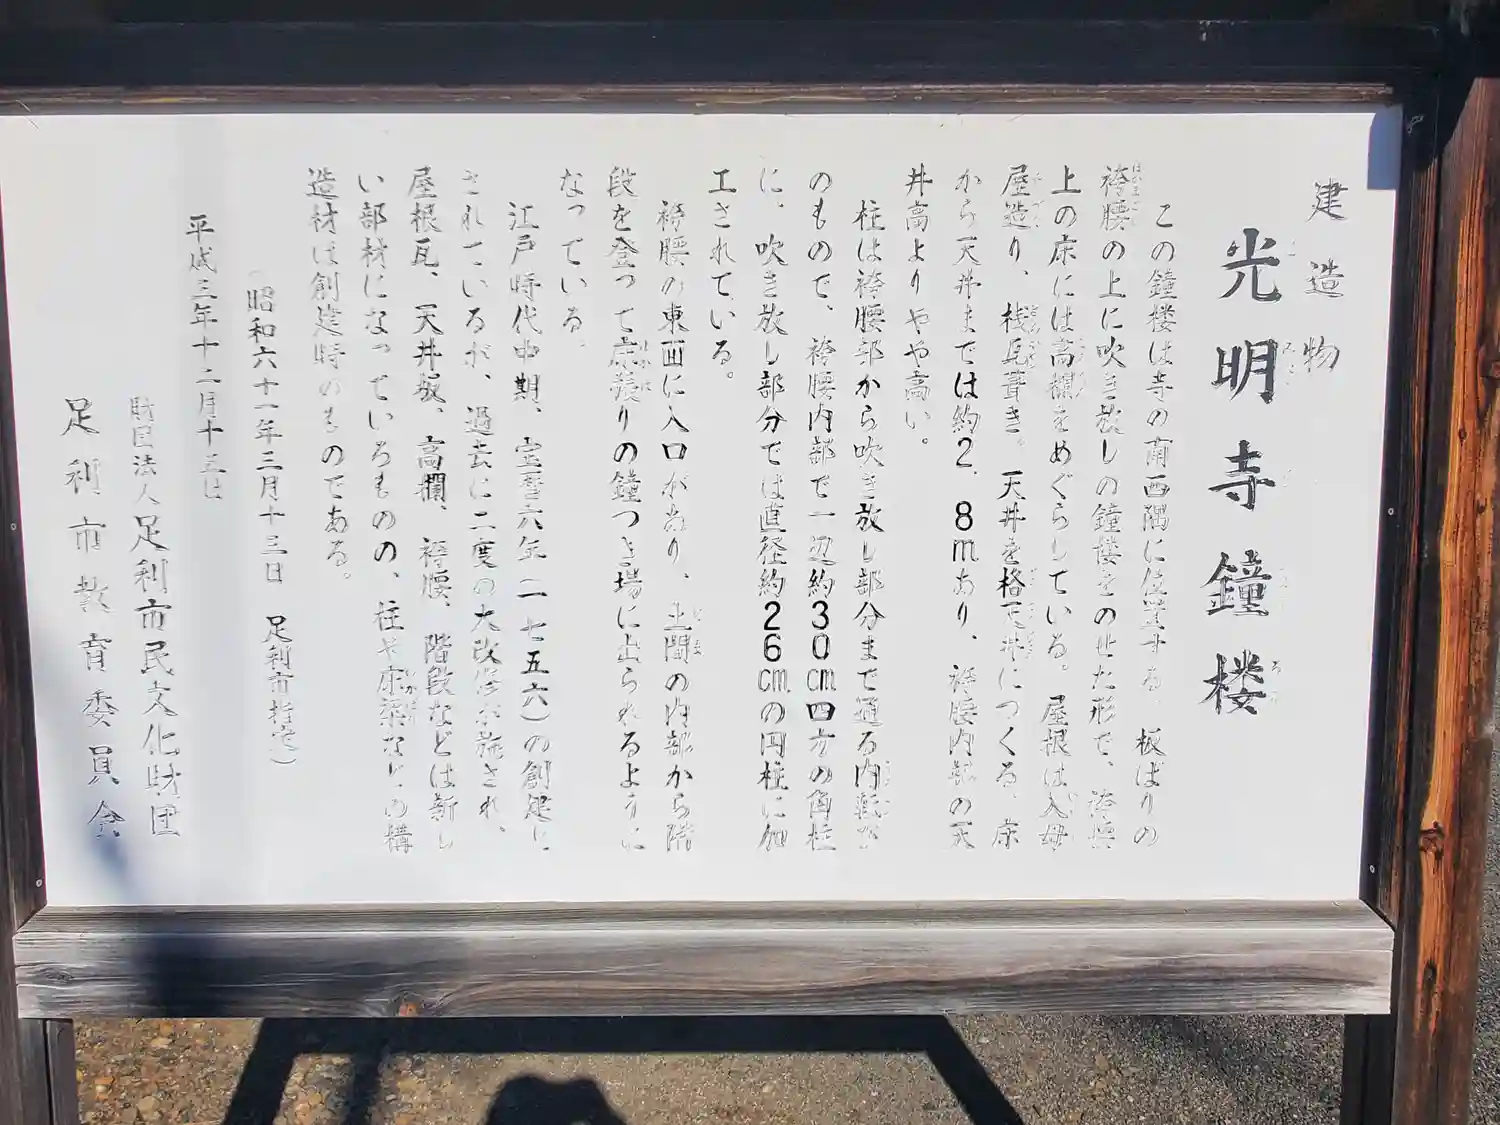 建造物
光明寺鐘楼
この鐘楼は寺の南西隅に位置する。板ばりの
袴腰の上に吹き放しの鐘楼をのせた形で、袴腰
上の床には高欄をめぐらしている。屋根は入母
屋造り、桟瓦葺き。天井を格天井につくる。床
から天井までは約2.8mあり、袴腰内部の天
井高よりやや高い。
柱は袴腰部から吹き放し部分まで通る内転び
のもので、袴腰内部で一辺約30cm四方の角柱
に、吹き放し部分では直径約26cmの円柱に加
工されている。
袴腰の東面に入口があり、土間の内部から階
段を登って床張りの鐘つき場に出られるように
なっている。
江戸時代中期、宝暦六年(一七五六)の創建と
されているが、過去に二度の大改修が施され、
屋根瓦、天井板、高欄、袴腰、階段などは新し
い部材になっているものの、柱や床梁などの構
造材は創建時のものである。
(昭和六十一年三月十三日 足利市指定)
平成三年十二月十三日
財団法人足利市民文化財団
足利市教育委員会